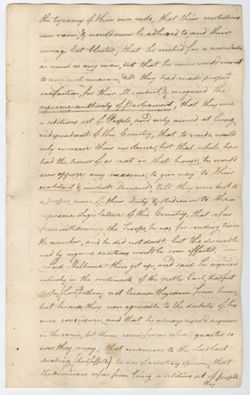 the tyranny of their own mobs, that their resolutions
were vain & would never be adhered to and their
courage but bluster, that he wished for a reconciliation
as much as any man, but that he never would consent
to any such measure, till they had made proper
satisfaction, for their ill conduct, & recognized the
supreme authority of Parliament, that they were
a seditious set of People and only aimed at being
independant of this Country, that to recede would
only increase their insolence, but that while he
had the honor of a seat in that house, he would
ever oppose any measure, to give way to their
and insolent Demands, till they were brot to
a proper sense of their Duty & obedience to the
supreme legislature of this Country, that so far
from withdrawing the Troops he was for sending
the number, and he did not doubt but the desirable
end by vigorous exertions would be soon effected
Lord Chatham then got up, and said he agreed
intirely in the sentiments of the noble Earl
not because they came from him,
but because they were agreeable to the dictates of his
own conscience, and that he always would rejoice
in the same, let them come from what quarter so
ever they may, that in answer to the Lord last
speaking he was of a contrary opinion, that
the Americans so far from being a seditious set of people
they